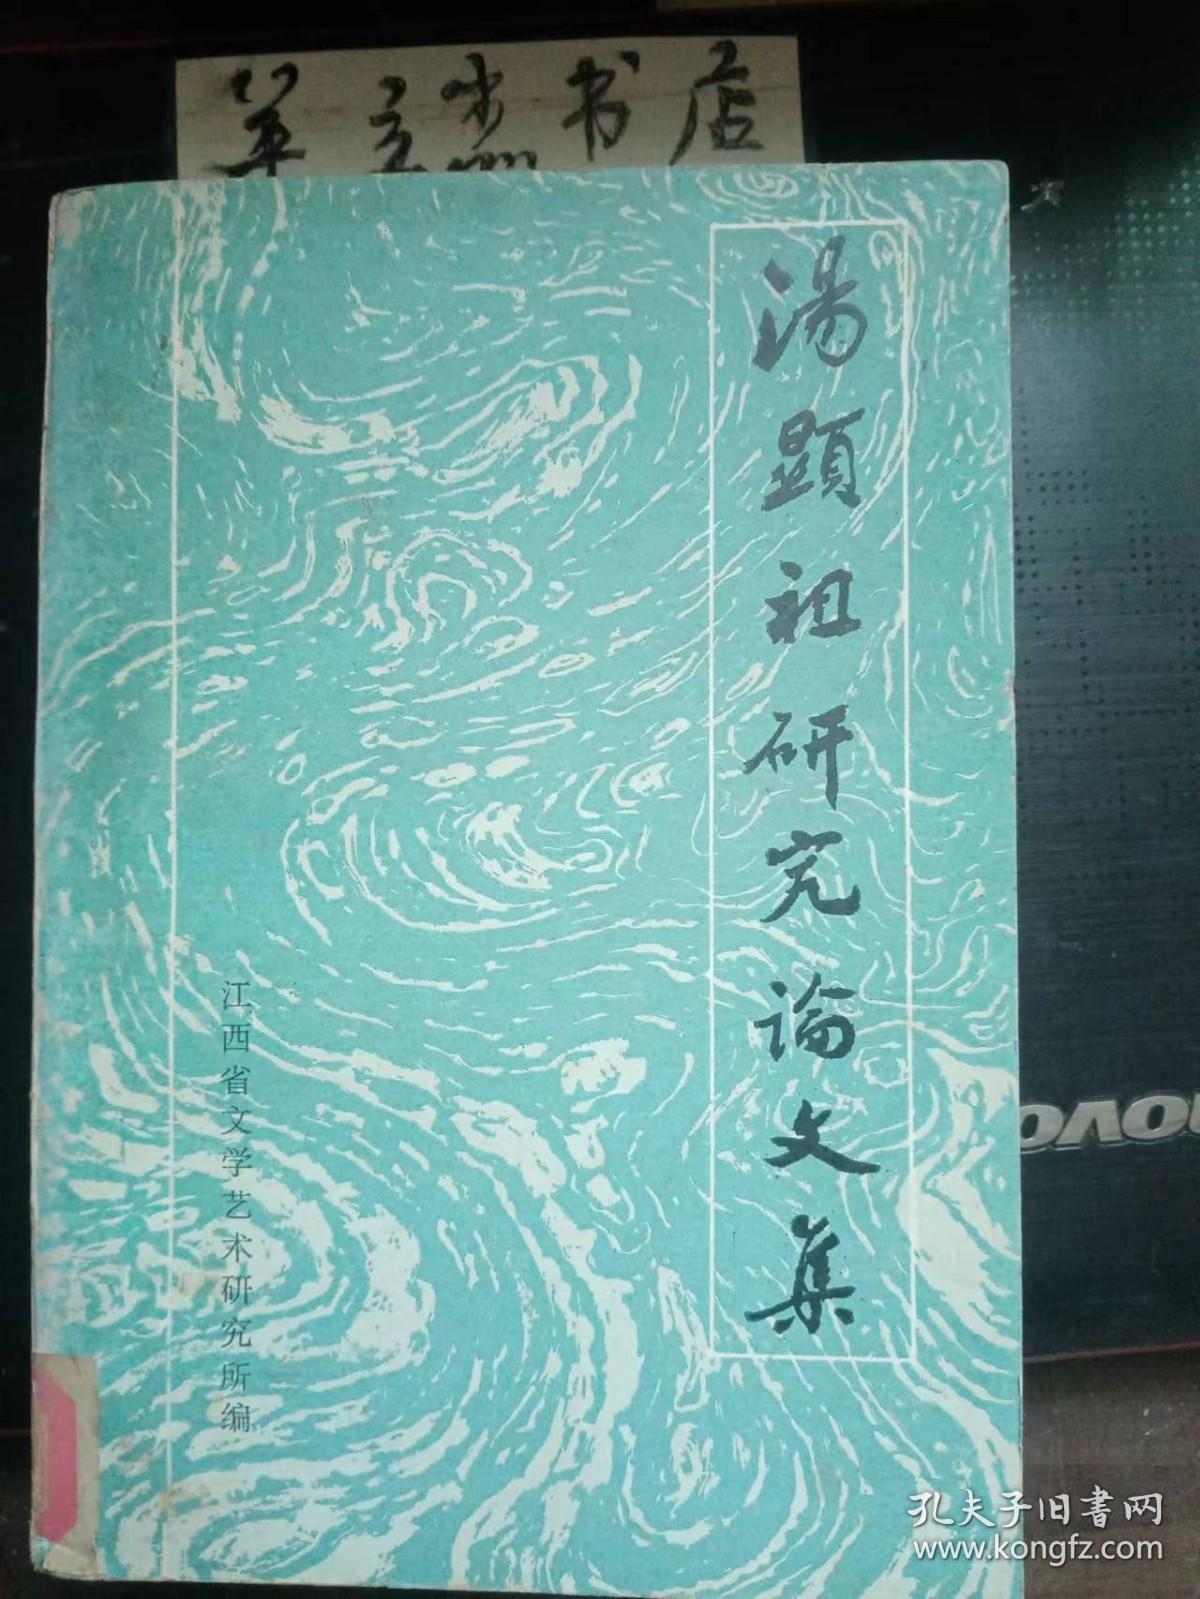 书店
湯顯祖研究论文集
江西省文学艺术研究所编
孔夫子旧書网
www.kongfz.com